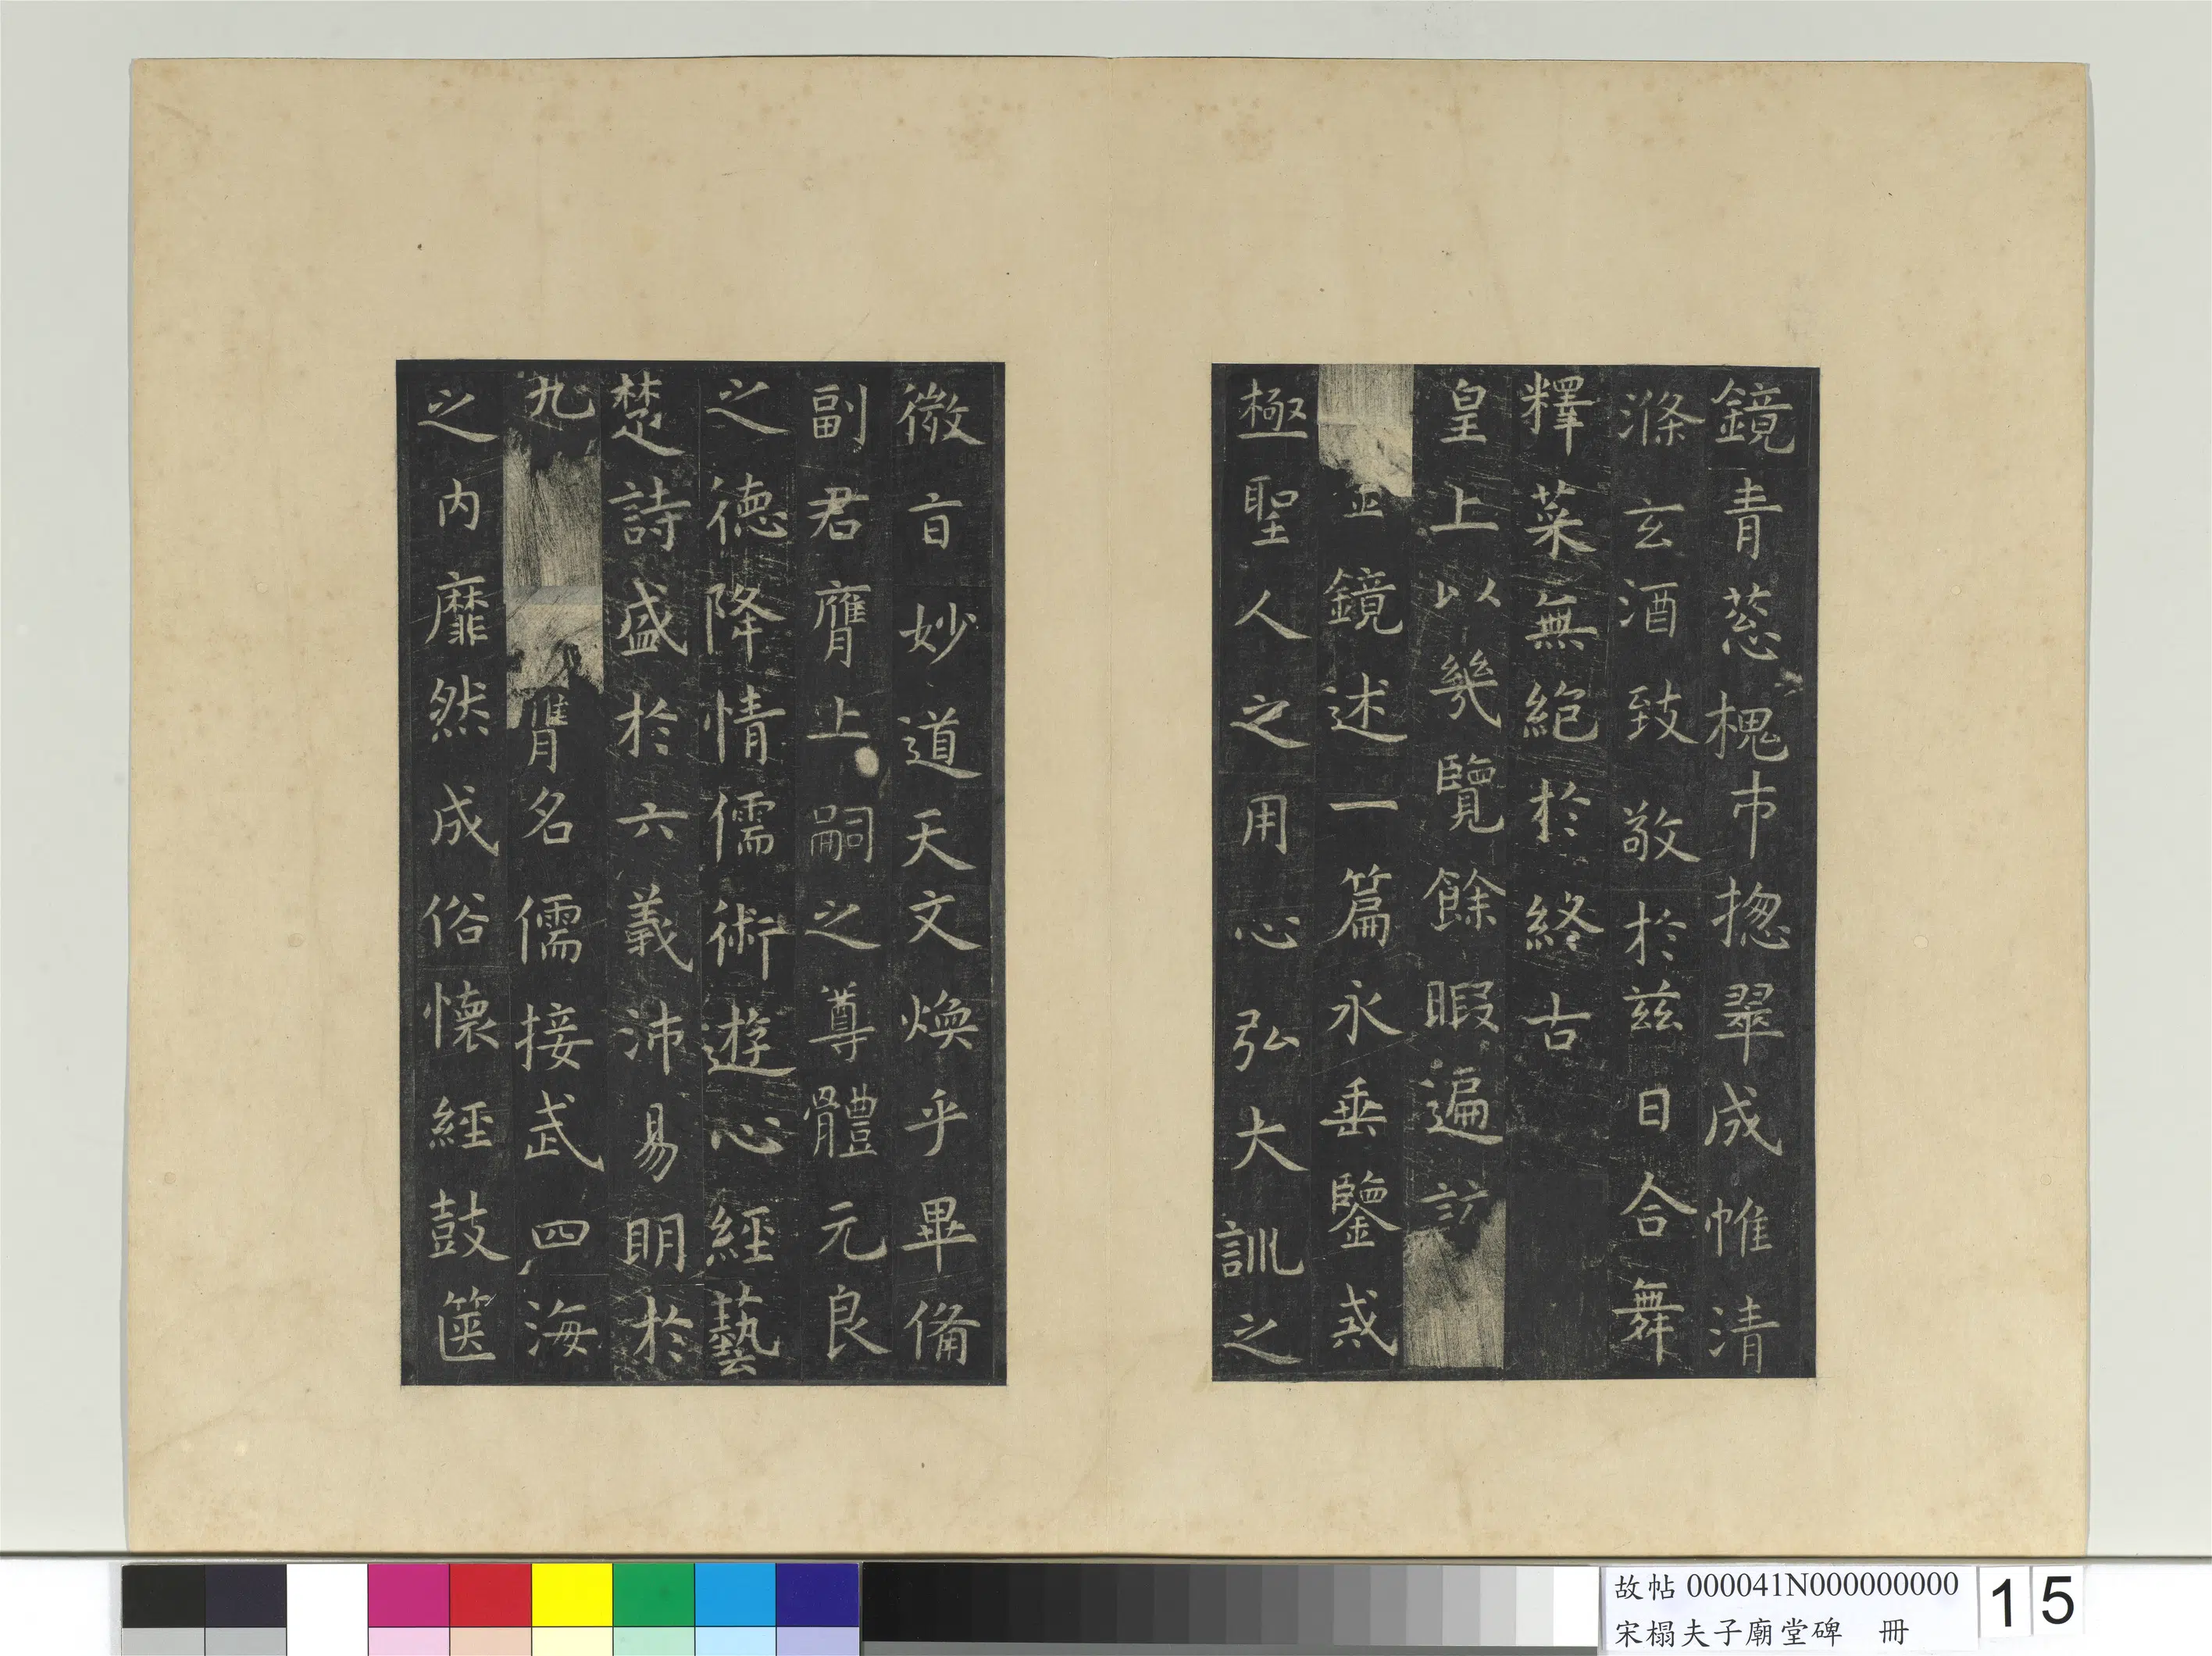 鏡青葱槐市揔翠成帷清
滌玄酒致敬於兹日合舞
釋菜無絶於終古
皇上以幾覽餘暇遍訪
金鏡述一篇永垂鑒戒
極聖人之用心弘大訓之
微旨妙道天文煥乎畢備
副君膺上嗣之尊體元良
之德降情儒術遊心經藝
楚詩盛於六義沛易明於
九 胥名儒接武四海
之内靡然成俗懷經鼓篋
故帖 000041N000000000
宋榻夫子廟堂碑 冊
15